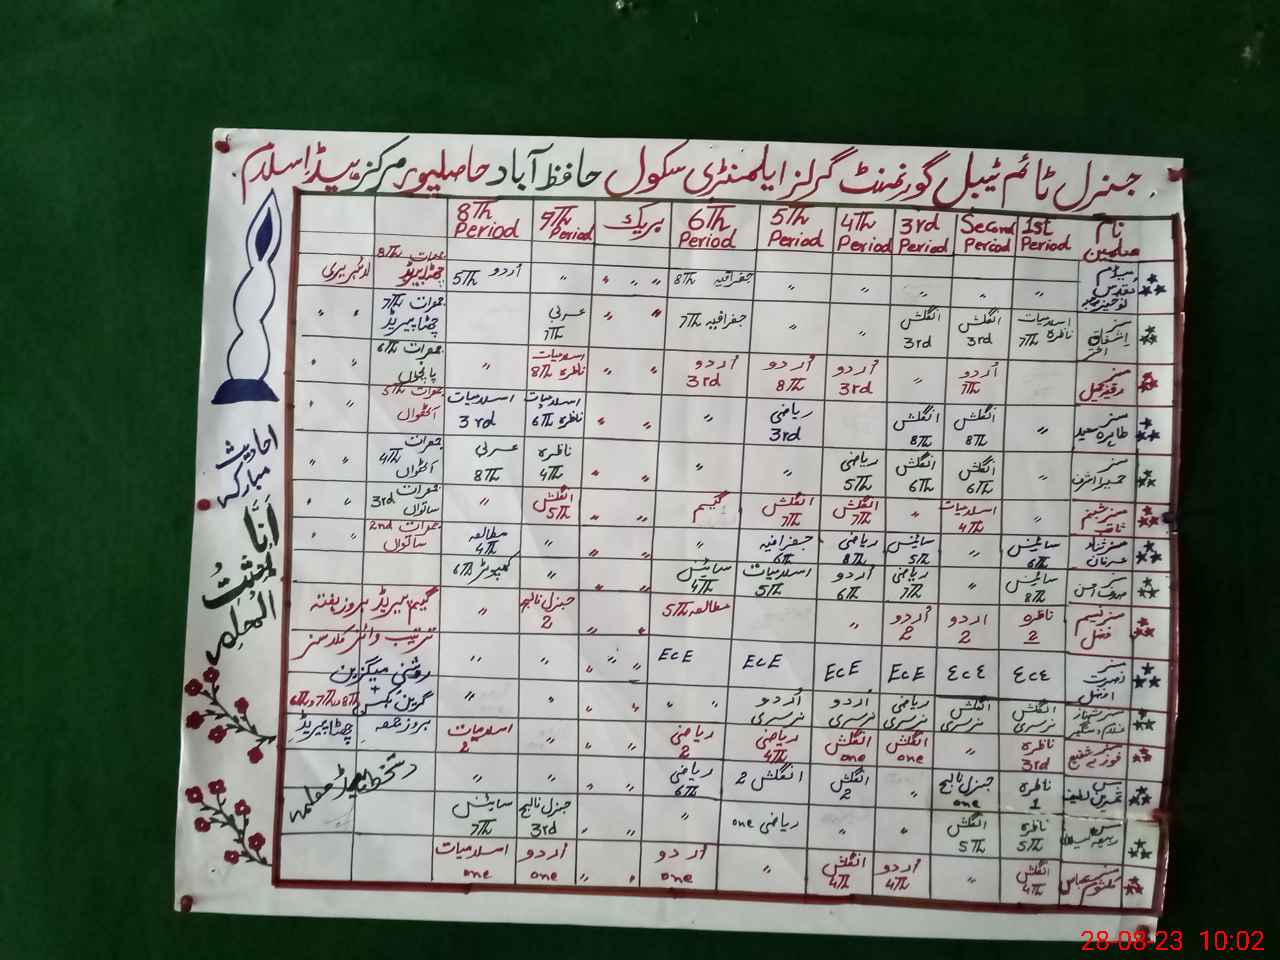 جنرل ٹائم ٹیبل گورنمنٹ گرلز ایلیمنٹری سکول حافظ آباد حاصلپور مرکز ہیڈ اسلام
نام معلمین 1st Period Second Period 3rd Period 4Th Period 5Th Period 6Th Period بریک 7Th Period 8Th Period
میڈم تقدیس " " " " " جغرافیہ 8Th " " " " اردو 5Th جمعرات 8Th چھٹا پیریڈ لائبریری
مسز اشفاق اختر اسلامیات ناظرہ 7Th انگلش 3rd انگلش 3rd " " جغرافیہ 7Th " " عربی 7Th جمعرات 7Th چھٹا پیریڈ " "
مسز اردو 7Th " اردو 3rd اردو 8Th اردو 3rd " " اسلامیات ناظرہ 8Th " جمعرات 6Th پانچواں " "
مسز طاہرہ سعید " انگلش 8Th انگلش 8Th ریاضی 3rd " " " اسلامیات ناظرہ 6Th اسلامیات 3rd جمعرات 5Th آٹھواں " "
مسز حمیرا اشرف " انگلش 6Th انگلش 6Th ریاضی 5Th " " " " ناظرہ 4Th عربی 8Th جمعرات 4Th آٹھواں " "
مسز شبنم ثاقب " اسلامیات 4Th " انگلش 7Th انگلش 7Th گیم " " انگلش 5Th " جمعرات 3rd ساتواں " "
مسز سائنس 6Th " سائنس 5Th ریاضی 8Th جغرافیہ 6Th " " " " مطالعہ 4Th جمعرات 2nd ساتواں " "
مسز سائنس 8Th " ریاضی 7Th اردو 6Th اسلامیات 5Th سائنس 4Th " " " کمپیوٹر 6Th
مسز نسیم فضل ناظرہ 2 اردو 2 اردو 2 " مطالعہ 5Th " " جنرل نالج 2 " گیم پیریڈ بروز ہفتہ
ترتیب وائز کلاسز
مسز نصرت افضل ECE ECE ECE ECE ECE ECE " " " " روشنی میگزین
+
مسز شہناز غلام دستگیر انگلش نرسری انگلش نرسری ریاضی نرسری اردو نرسری اردو نرسری " " " " " " گرین بکس 6Th, 7Th, 8Th
مسز فوزیہ شفیع ناظرہ 3rd " انگلش one انگلش one ریاضی 4Th ریاضی 2 " " " اسلامیات 2 بروز جمعہ چھٹا پیریڈ
مس ثمرین لطیف ناظرہ 1 جنرل نالج one " انگلش 2 انگلش 2 ریاضی 6Th " " " "
مس ناظرہ 5Th انگلش 5Th " " ریاضی one " " " جنرل نالج 3rd سائنس 7Th
مسز کلثوم عباس انگلش 4Th " اردو 4Th انگلش 4Th " اردو one " " اردو one اسلامیات one
دستخط ہیڈ معلمہ
احادیث
مبارکہ
المعلمہ
28-08-23 10:02